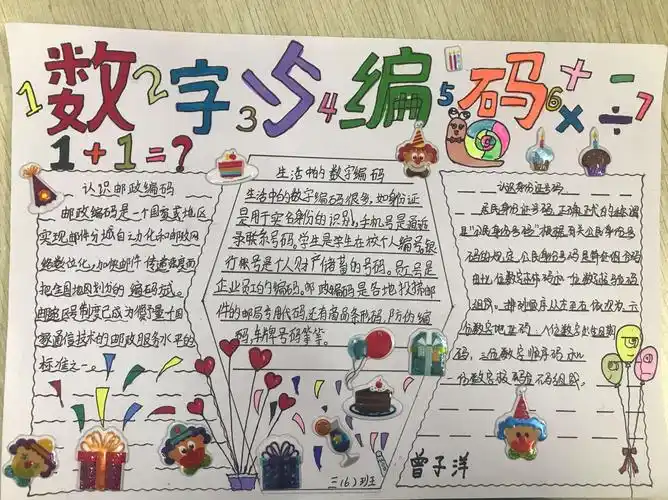 数字与编码
1 2 3 4 5 6 7
+ - × ÷
1+1=?
认识邮政编码
邮政编码是一个国家或地区
实现邮件分拣自动化和邮政网
络数位化,加快邮件传递
把全国地划分的编码方式。
邮政区号制度已成为衡量一个国
家通信技术和邮政服务水平的
标准之一。
生活中的数字编码
生活中的数字编码很多,如身份证
是用于实名身份的识别,手机号是通讯
录联系号码。学生是学生在校个人编号,银
行账号是个人财产储蓄的号码。员工号是
企业员工的编码。邮政编码是各地投递邮
件的邮局专用代码,还有商品条形码,防伪编
码,车牌号码等等。
认识身份证号码
居民身份证号码,正确、正式的称谓
是"公民身份号码"根据有关公民身份号
码的规定,公民身份号码是特征组合码
由十七位数字本体码和一位数字校验码
组成。排列顺序从左至右依次为:六
位数字地址码,八位数字出生日期
码,三位数字顺序码和一
位数字校验码
三(6)班
曾子洋